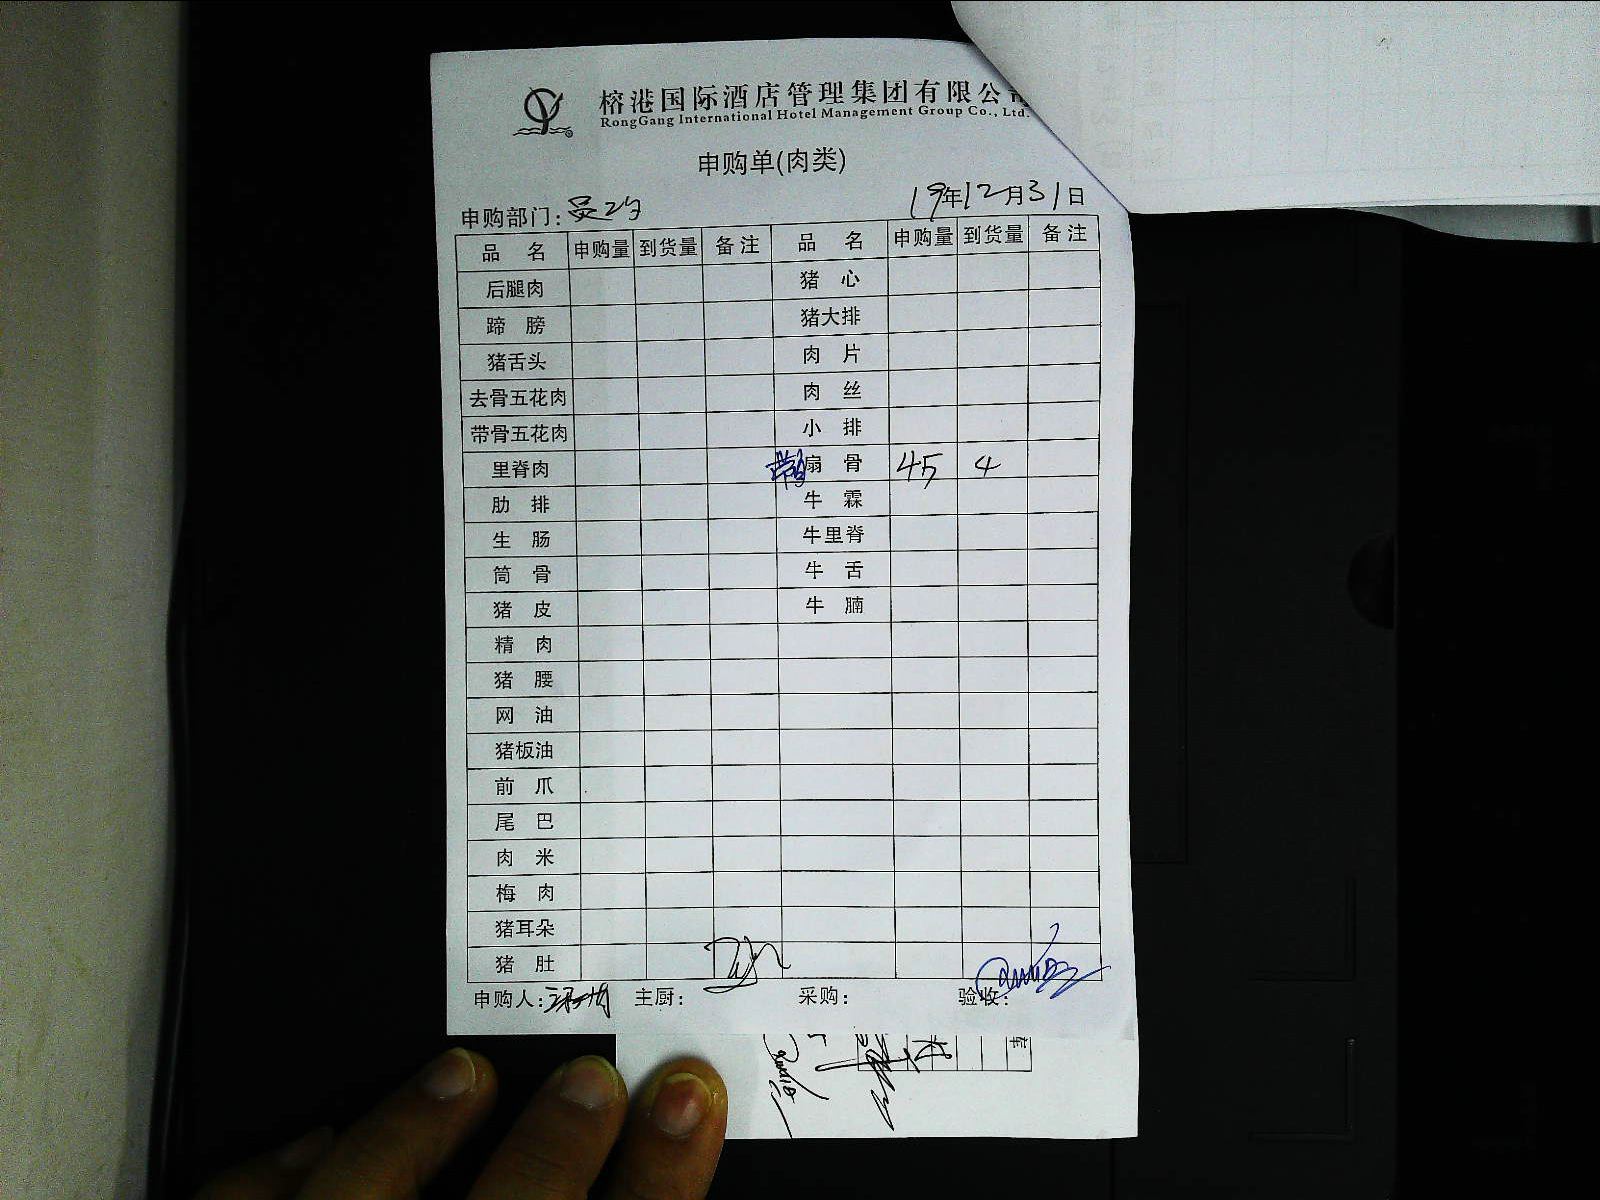 榕港国际酒店管理集团有限公司
RongGang International Hotel Management Group Co., Ltd.
申购单(肉类)
申购部门:员工 19年12月31日
品 名 申购量 到货量 备注 品 名 申购量 到货量 备注
后腿肉 猪 心
蹄 膀 猪大排
猪舌头 肉 片
去骨五花肉 肉 丝
带骨五花肉 小 排
里脊肉 扇 骨 45 4
肋 排 牛 霖
生 肠 牛里脊
筒 骨 牛 舌
猪 皮 牛 腩
精 肉
猪 腰
网 油
猪板油
前 爪
尾 巴
肉 米
梅 肉
猪耳朵
猪 肚
申购人: 主厨: 采购: 验收: